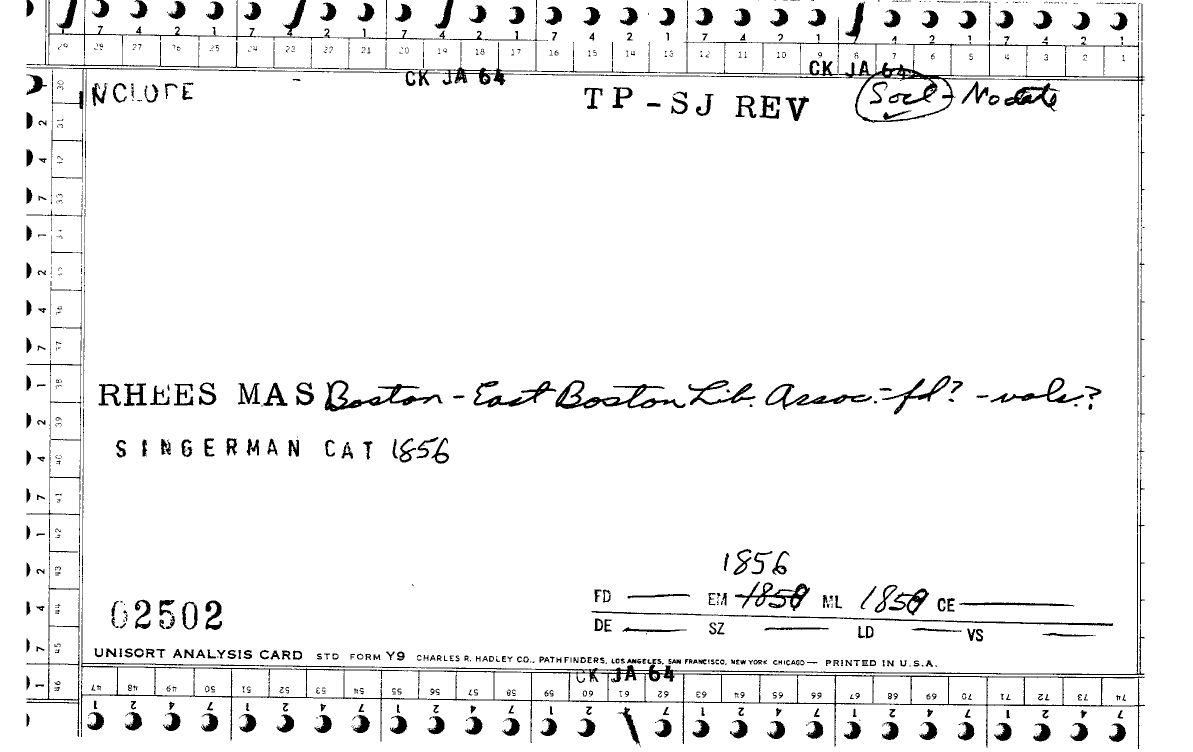 7 4 2 1 7 4 2 1 7 4 2 1 7 4 2 1 7 4 2 1 7 4 2 1 7 4 2 1
29 28 27 26 25 24 23 22 21 20 19 18 17 16 15 14 13 12 11 10 9 8 7 6 5 4 3 2 1
CK JA 64 CK JA 64
NCLOPE TP-SJ REV Socl - No date
RHEES MAS Boston - East Boston Lib. Assoc. - fd? - vols.?
SINGERMAN CAT 1856
1856
02502
FD EM 1850 ML 1859 CE
DE SZ LD VS
UNISORT ANALYSIS CARD STD FORM Y9 CHARLES R. HADLEY CO., PATHFINDERS, LOS ANGELES, SAN FRANCISCO, NEW YORK CHICAGO — PRINTED IN U.S.A.
CK JA 64
47 48 49 50 51 52 53 54 55 56 57 58 59 60 61 62 63 64 65 66 67 68 69 70 71 72 73 74
1 2 4 7 1 2 4 7 1 2 4 7 1 2 4 7 1 2 4 7 1 2 4 7 1 2 4 7